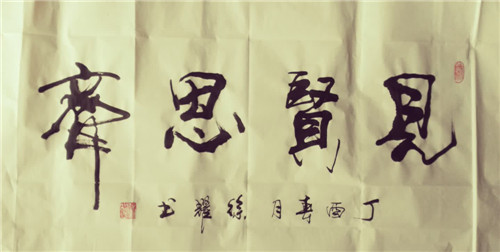 見賢思齊
丁酉春月徐耀书